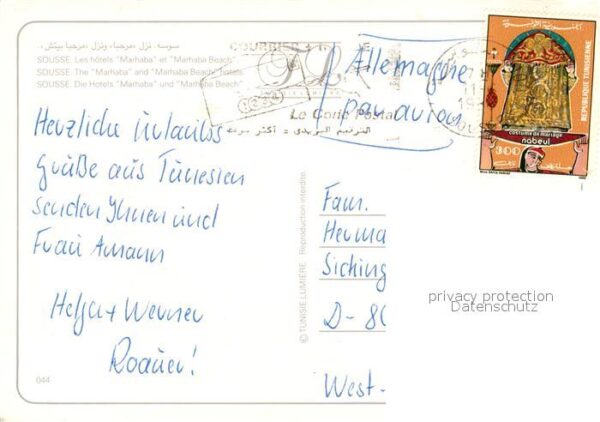 سوسه. نزل «مرحبا» ونزل «مرحبا بيتش»
SOUSSE. Les hôtels "Marhaba" et "Marhaba Beach".
SOUSSE. The "Marhaba" and "Marhaba Beach" hotels.
SOUSSE. Die Hotels "Marhaba" und "Marhaba Beach".
Le Code Postal
الترقيم البريدي = أكثر سرعة
Allemagne
par avion
REPUBLIQUE TUNISIENNE
costume de mariage
nabeul
300
Herzliche Urlaubs
Grüße aus Tunesien
senden Ihnen und
Frau Amann
Helga + Werner
044
© TUNISIE LUMIÈRE. Reproduction interdite.
Fam.
Herma
Siching
D-80
West-
privacy protection
Datenschutz